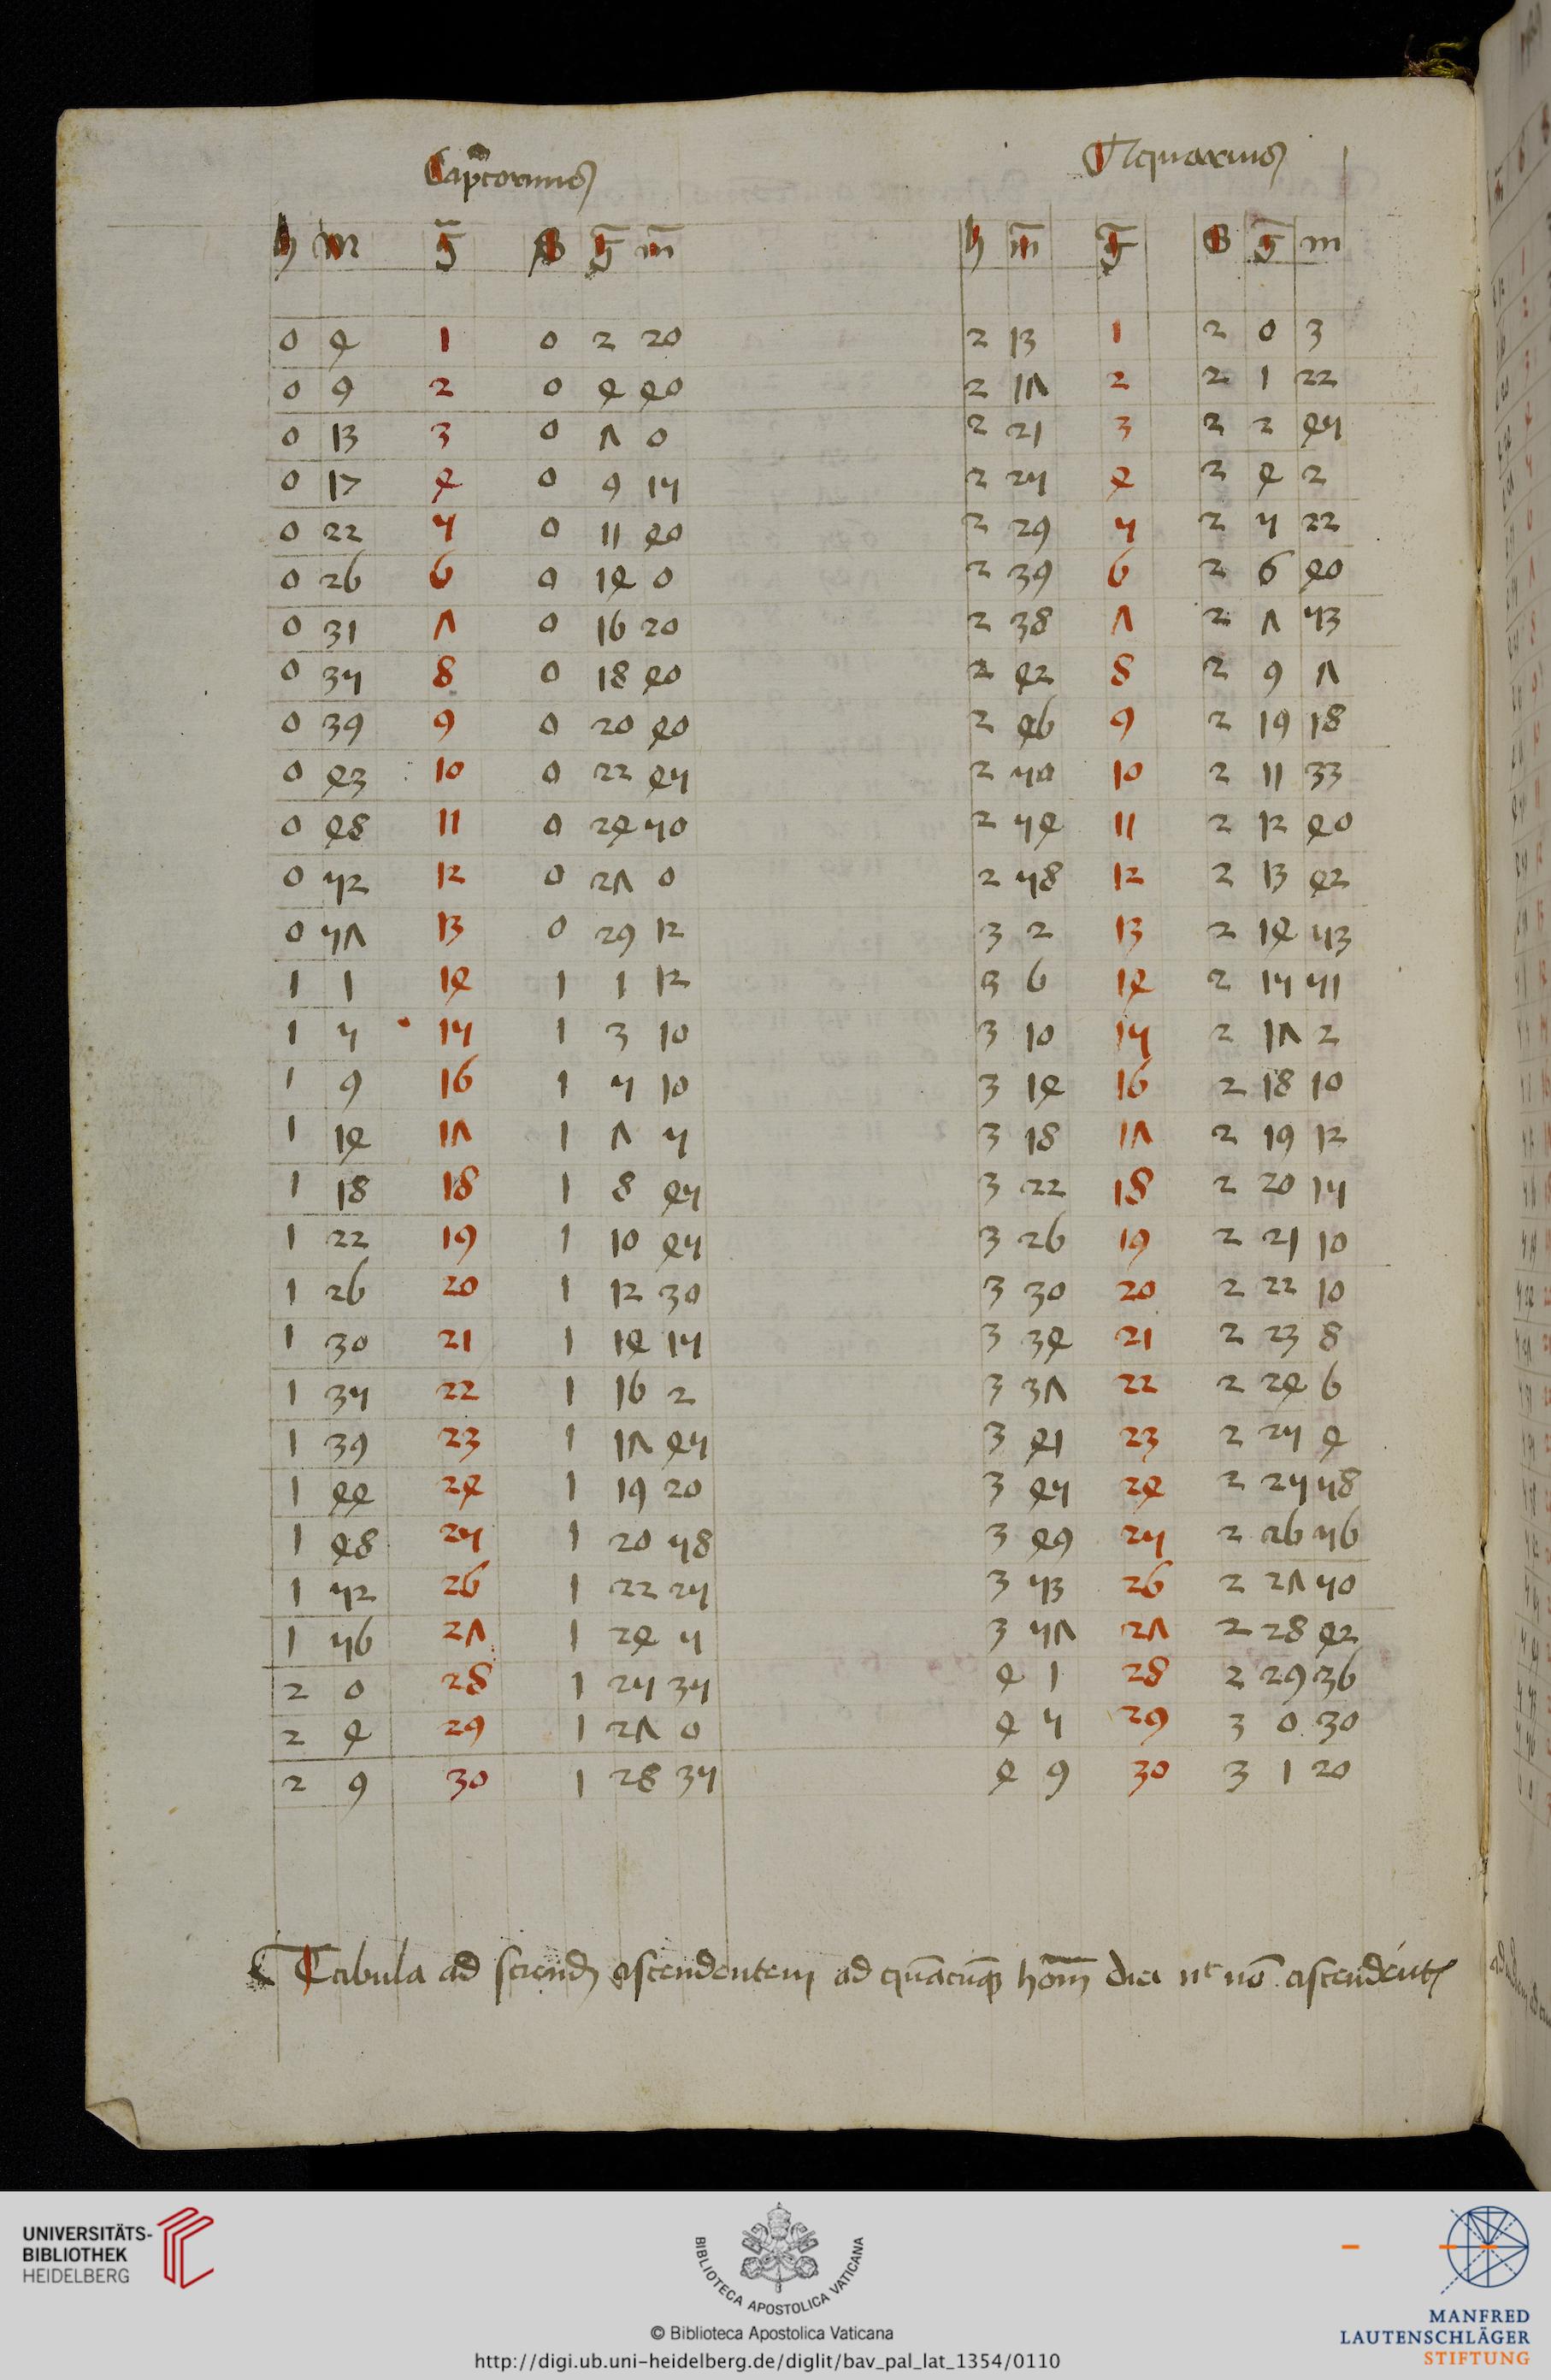 Capͨcornus Aquarius
h m g S g m h m g S g m
0 4 1 0 2 20 2 13 1 2 0 3
0 9 2 0 4 40 2 17 2 2 1 22
0 13 3 0 7 0 2 21 3 2 2 45
0 17 4 0 9 15 2 25 4 2 4 2
0 22 5 0 11 40 2 29 5 2 5 22
0 26 6 0 14 0 2 39 6 2 6 40
0 31 7 0 16 20 2 38 7 2 7 53
0 35 8 0 18 40 2 42 8 2 9 7
0 39 9 0 20 40 2 46 9 2 19 18
0 43 10 0 22 45 2 50 10 2 11 33
0 48 11 0 24 50 2 54 11 2 12 40
0 52 12 0 27 0 2 58 12 2 13 42
0 57 13 0 29 12 3 2 13 2 14 53
1 1 14 1 1 12 3 6 14 2 15 51
1 5 15 1 3 10 3 10 15 2 17 2
1 9 16 1 5 10 3 14 16 2 18 10
1 14 17 1 7 5 3 18 17 2 19 12
1 18 18 1 8 45 3 22 18 2 20 15
1 22 19 1 10 45 3 26 19 2 21 10
1 26 20 1 12 30 3 30 20 2 22 10
1 30 21 1 14 15 3 34 21 2 23 8
1 35 22 1 16 2 3 37 22 2 24 6
1 39 23 1 17 45 3 41 23 2 25 4
1 44 24 1 19 20 3 45 24 2 25 58
1 48 25 1 20 58 3 49 25 2 26 56
1 52 26 1 22 25 3 53 26 2 27 50
1 56 27 1 24 5 3 57 27 2 28 42
2 0 28 1 25 35 4 1 28 2 29 36
2 4 29 1 27 0 4 5 29 3 0 30
2 9 30 1 28 35 4 9 30 3 1 20
Tabula ad sciend ascendentem ad quācūqꝫ horam diei ascendēnt
UNIVERSITÄTS-
BIBLIOTHEK
HEIDELBERG
BIBLIOTECA APOSTOLICA VATICANA
© Biblioteca Apostolica Vaticana
http://digi.ub.uni-heidelberg.de/diglit/bav_pal_lat_1354/0110
MANFRED
LAUTENSCHLÄGER
STIFTUNG